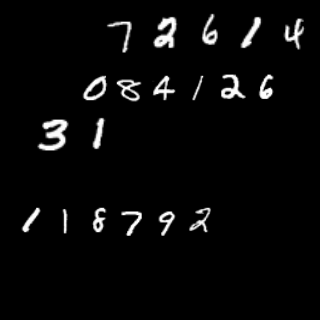 72614
084126
31
118792